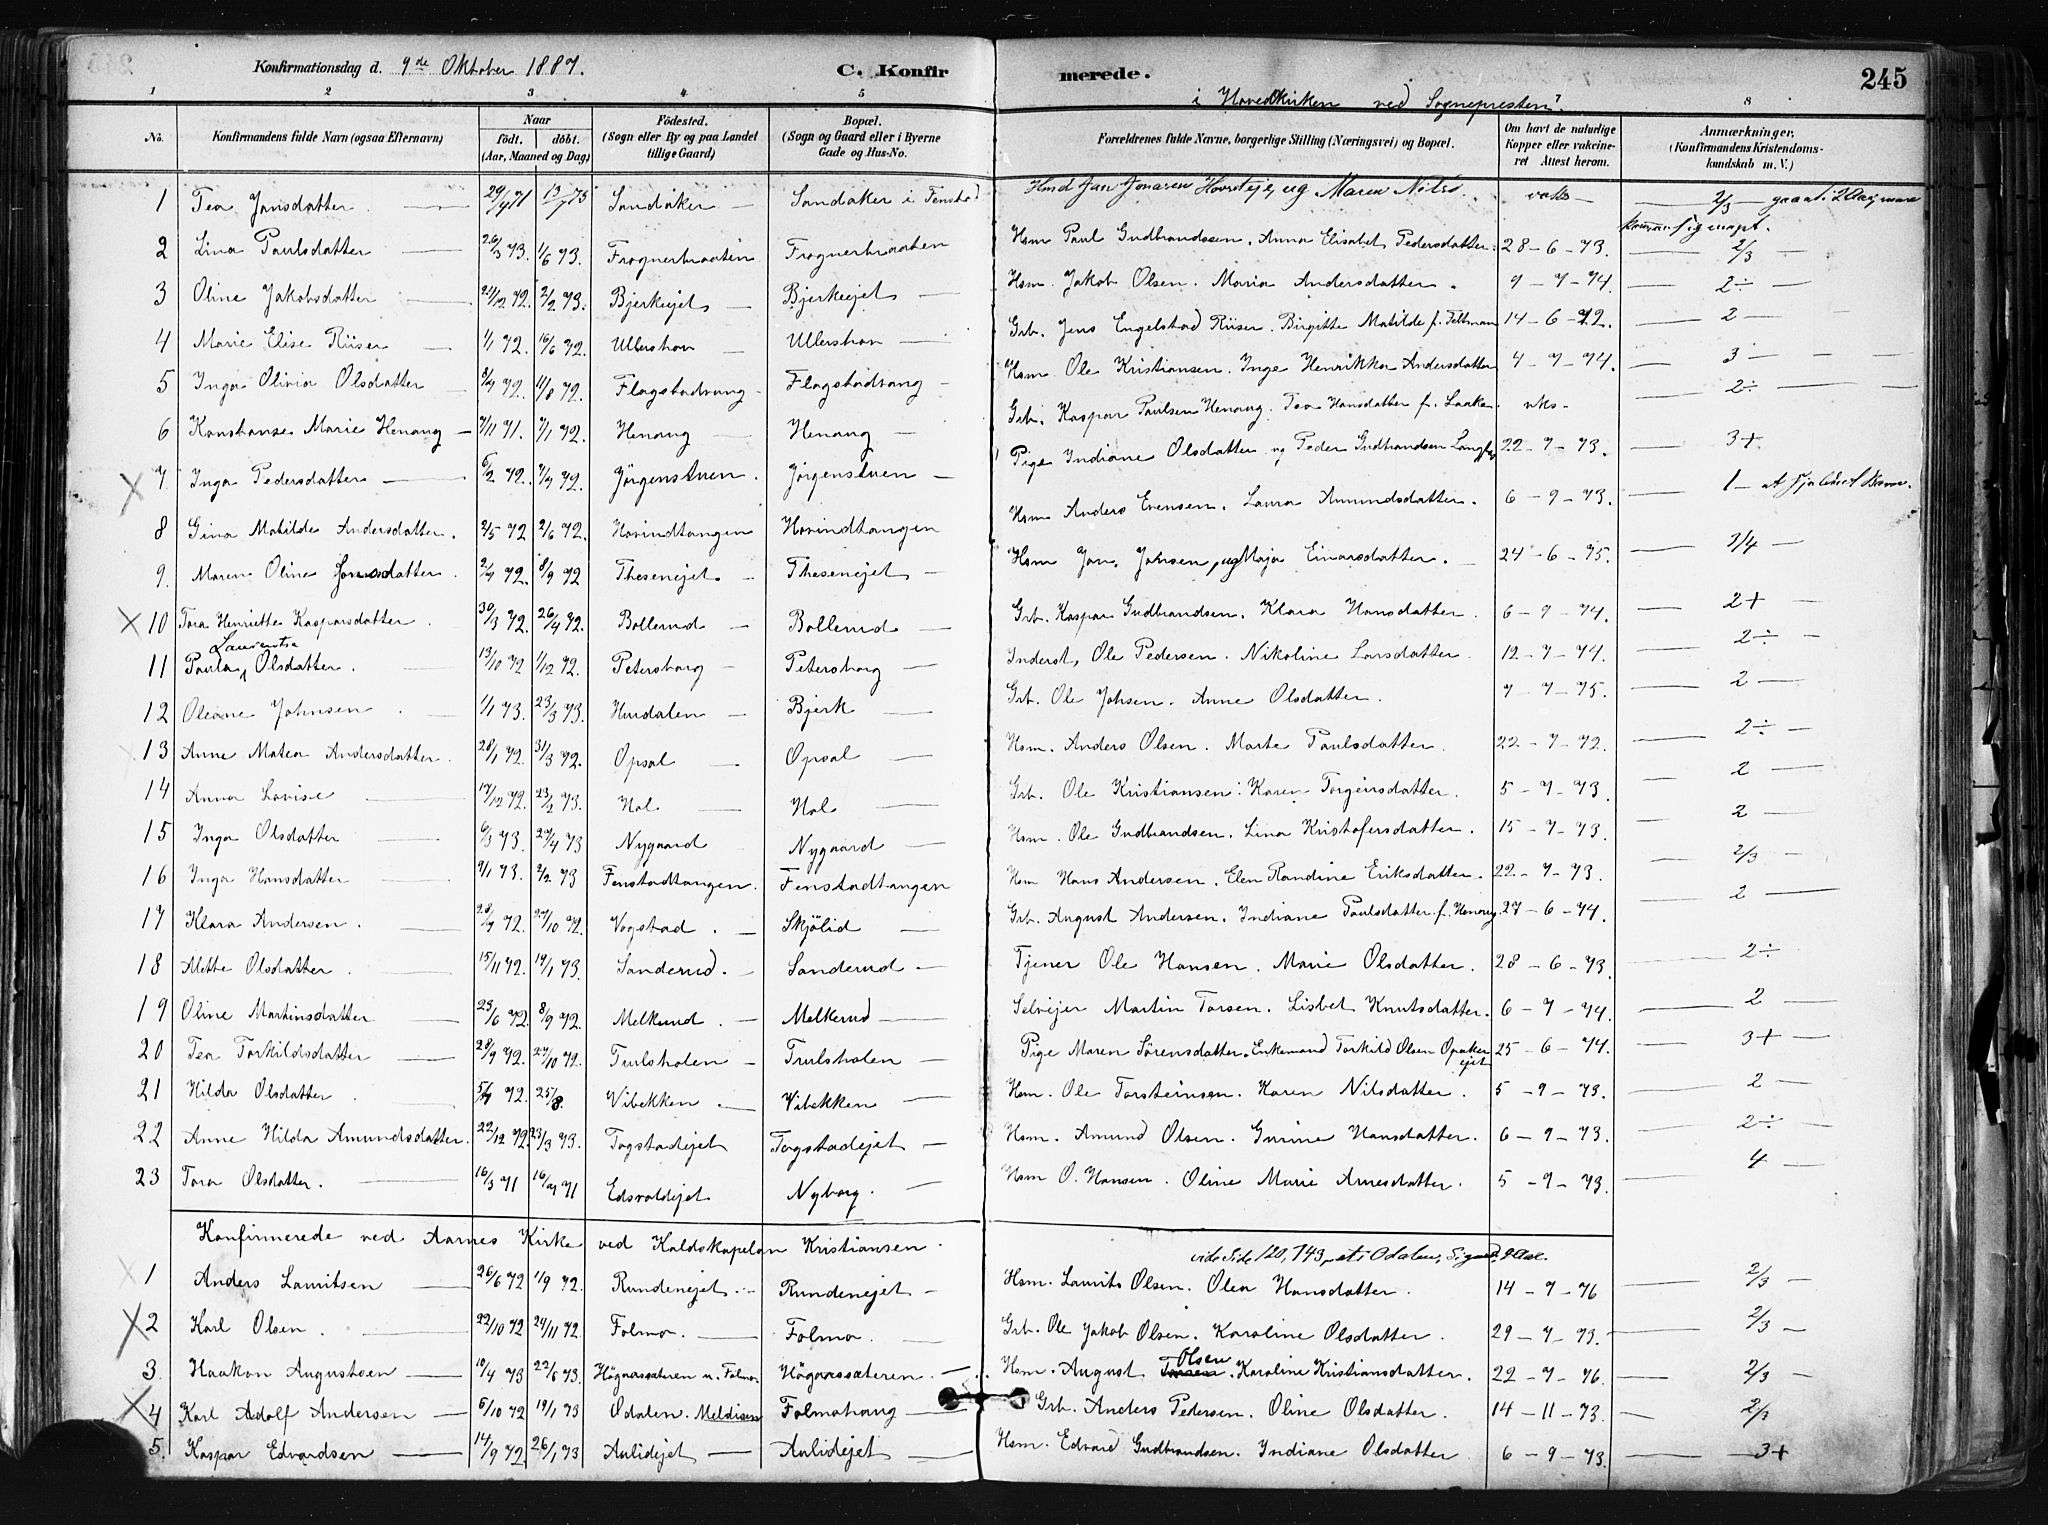 Konfirmationsdag d. 9de Oktober 1887. C. Konfirmerede. 245
i Hovedkirken ved Sognepresten
1 2 3 4 5 7 8
No. Konfirmandens fulde Navn (ogsaa Efternavn) Naar født. døbt. (Aar, Maaned og Dag) Fødested. (Sogn eller By og paa Landet tillige Gaard) Bopæl. (Sogn og Gaard eller i Byerne Gade og Hus-No. Forældrenes fulde Navne, borgerlige Stilling (Næringsvei) og Bopæl. Om havt de naturlige Kopper eller vakcineret Attest herom. Anmærkninger. (Konfirmandens Kristendomskundskab m. V.)
1 Tea Jansdatter 29/4 71 13/7 73 Sandaker Sandaker i Fenstad Jan Jonasen og Maren Nilsd. 2/3
2 Lina Paulsdatter 26/3 73. 1/6 73. Frognerbraaten Frognerbraaten Hsm Paul Gudbrandsen. Anna Elisabet Pedersdatter. 28-6-73. 2/3
3 Oline Jakobsdatter 21/12 72. 2/2 73. Bjerkeejet Bjerkeejet Hsm. Jakob Olsen. Maria Andersdatter. 9-7-74. 2÷
4 Marie Elise Riiser 1/1 72. 16/6 72. Ullershov Ullershov Grb. Jens Engelstad Riiser. Birgitte Matilde f. Feltman 14-6-72. 2
5 Inga Olivia Olsdatter 3/7 72. 11/8 72. Flagstadvang Flagstadvang Hsm. Ole Kristiansen. Inge Henrikka Andersdatter 4-7-74. 3
6 Konstanse Marie Henaug 7/11 71. 7/1 72. Henaug Henaug Grb. Kaspar Paulsen Henaug. Tea Hansdatter f. Laake. vks. 2÷
7. Inga Pedersdatter 6/2 72. 7/7 72. Jørgenstuen. Jørgenstuen Pige Indiane Olsdatter og Peder Gudbrandsen 22-7-73. 3+
8 Gina Matilde Andersdatter. 2/5 72 2/6 72. Hovindtangen Hovindtangen Hsm Anders Evensen. Laura Amundsdatter. 6-9-73. 1
9. Maren Oline Jonsdatter. 2/7 72. 8/9 72 Thesenejet Thesenejet Hsm Jon Johsen, og Maja Einarsdatter. 24-6-75. 3/4
10 Tora Henriette Kasparsdatter. 30/3 72. 26/4 72. Bollerud Bollerud Grb. Kaspar Gudbrandsen. Klara Hansdatter. 6-9-74. 2+
11 Paula Laurentse Olsdatter. 13/10 72 1/12 72. Petersborg Petersborg Inderst, Ole Pedersen. Nikoline Larsdatter. 12-7-74. 2÷
12 Oleane Johnsen 1/1 73. 23/3 73. Hurdalen Bjerk Grb. Ole Johsen. Anne Olsdatter. 7-7-75. 2
13 Anne Matea Andersdatter. 28/1 72. 31/3 72. Opsal Opsal Hsm. Anders Olsen. Marte Paulsdatter. 22-7-72. 2÷
14 Anna Lovise 17/12 72. 23/2 73. Hol Hol Grb. Ole Kristiansen. Karen Torgersdatter. 5-7-73. 2
15 Inga Olsdatter 6/3 73. 27/4 73 Nygaard Nygaard Hsm. Ole Gudbrandsen. Lina Kristofersdatter. 15-7-73. 2
16 Inga Hansdatter 2/1 73. 2/2 73 Fenstadtangen. Fenstadtangen Hsm Hans Andersen. Elen Randine Eriksdatter. 22-7-73. 2/3
17 Klara Andersen. 28/7 72. 27/10 72. Vogstad. Skjölid Grb. August Andersen. Indiane Paulsdatter f. Henaug. 27-6-74. 2
18 Mette Olsdatter. 15/11 72. 19/1 73. Sanderud. Sanderud Tjener Ole Hansen. Marie Olsdatter. 28-6-73. 2÷
19 Oline Martinsdatter 23/6 72. 8/9 72. Melkerud. Melkerud Selvejer Martin Torsen. Lisbet Knutsdatter. 6-7-74. 2
20 Tea Torkildsdatter 28/9 72. 27/10 72. Trulsholen Trulsholen Pige Maren Sörensdatter. Enkemand Torkild Olsen Opakerejet 25-6-74. 3+
21 Hilda Olsdatter 5/7 72. 25/8. Vibekken Vibekken Hsm. Ole Torsteinsen. Karen Nilsdatter. 5-9-73. 2
22 Anne Hilda Amundsdatter. 22/12 72. 23/3 73. Togstadejet Togstadejet Hsm. Amund Olsen. Gurine Hansdatter. 6-9-73. 2÷
23 Tora Olsdatter. 16/3 71 16/7 71 Edsvoldejet Nyborg. Hsm O. Hansen. Oline Marie Arnesdatter. 5-9-73. 4
Konfirmerede ved Aarnes Kirke ved Kaldskapelan Kristiansen. vide Side 120, 143
1 Anders Lauritsen 26/6 72 1/9 72. Rundenejet Rundenejet Hsm. Laurits Olsen. Olea Hansdatter. 14-7-76 2/3
2 Karl Olsen. 22/10 72 24/11 72. Folmo. Folmo. Grb. Ole Jakob Olsen. Karoline Olsdatter. 29-7-73. 2/3
3. Haakon Augustsen 10/4 73 22/6 73. Högaassæteren u. Folmo. Högaassæteren. Hsm. August Olsen. Karoline Kristiansdatter. 22-7-76. 2/3
4 Karl Adolf Andersen 5/10 72 19/1 73 Odalen. Folmohaug Grb. Anders Pedersen. Oline Olsdatter. 14-11-73. 2/3
5. Kaspar Edvardsen 14/9 72. 26/1 73 Aulidejet Aulidejet Hsm. Edvard Gudbrandsen. Indiane Olsdatter 6-9-73. 3+